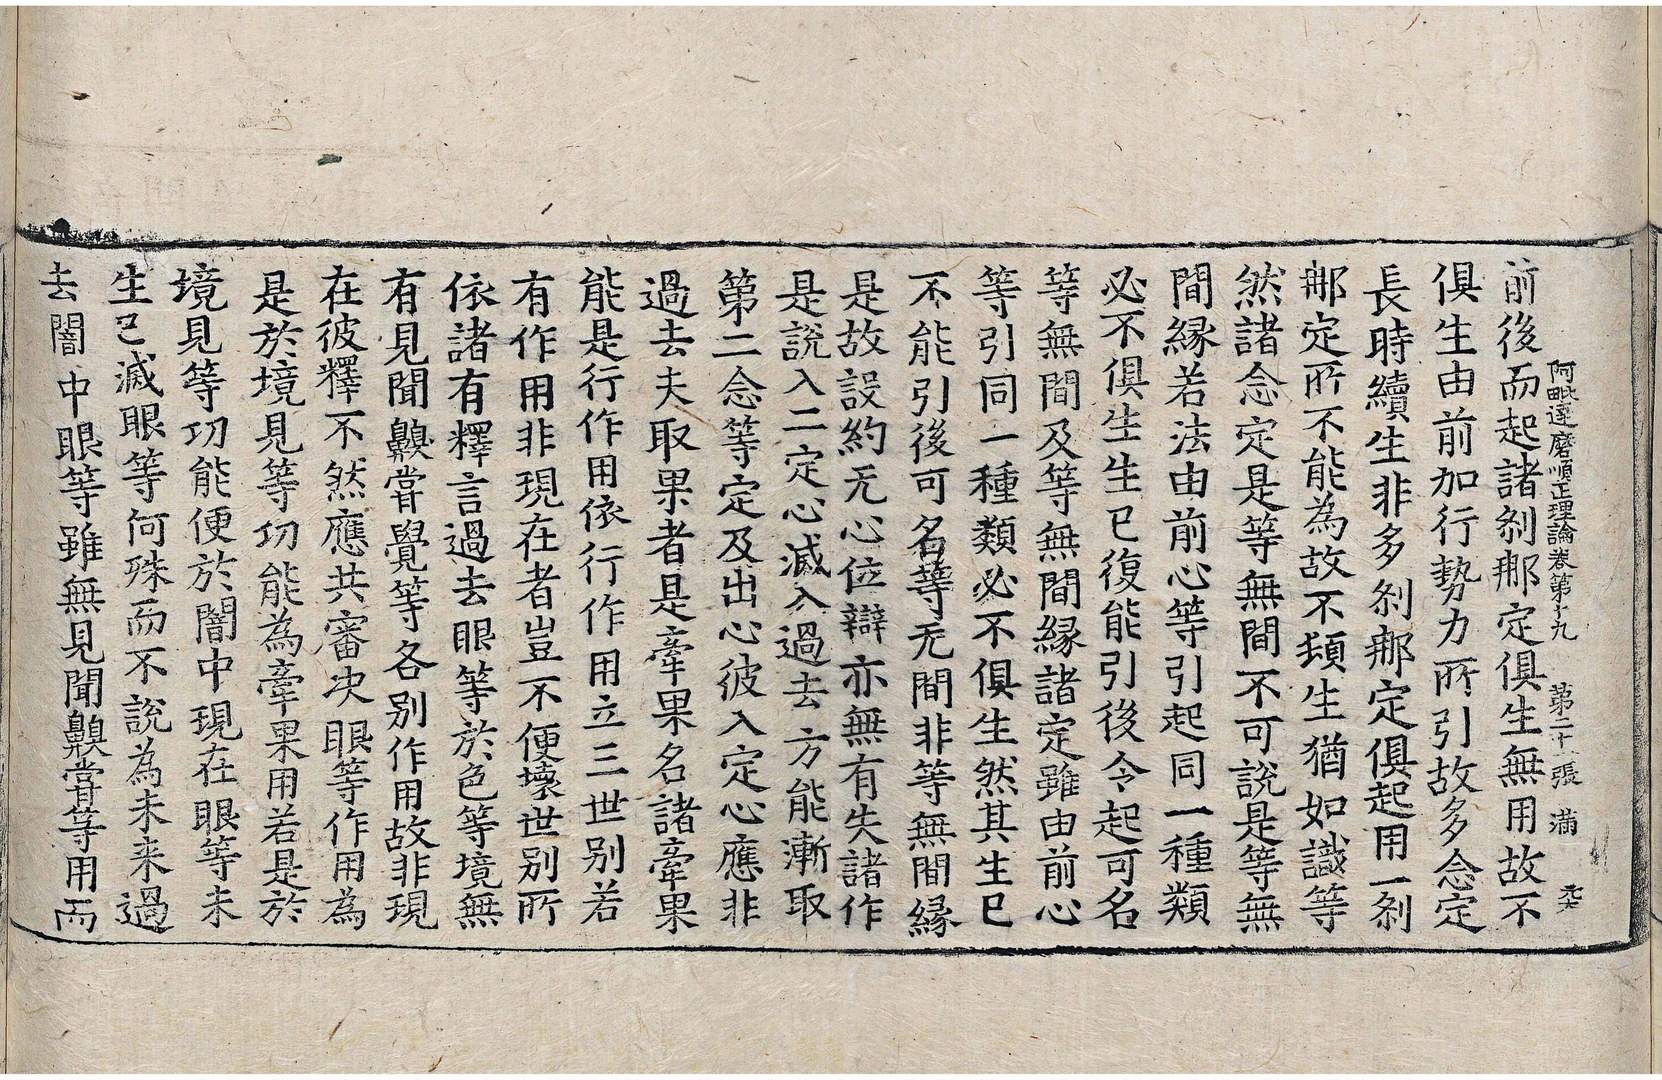 阿毗達磨順正理論卷第十九　第二十張　滿
前後而起諸刹那定俱生無用故不
俱生由前加行勢力所引故多念定
長時續生非多刹那定俱起用一刹
那定所不能為故不頻生猶如識等
然諸念定是等無間不可說是等無
間緣若法由前心等引起同一種類
必不俱生生已復能引後令起可名
等無間及等無間緣諸定雖由前心
等引同一種類必不俱生然其生已
不能引後可名等无間非等無間緣
是故設約无心位辯亦無有失諸作
是說入二定心滅入過去方能漸取
第二念等定及出心彼入定心應非
過去夫取果者是牽果名諸牽果
能是行作用依行作用立三世別若
有作用非現在者豈不便壞世別所
依諸有釋言過去眼等於色等境無
有見聞齅甞覺等各別作用故非現
在彼釋不然應共審決眼等作用為
是於境見等功能為牽果用若是於
境見等功能便於闇中現在眼等未
生已滅眼等何殊而不說為未來過
去闇中眼等雖無見聞齅甞等用而